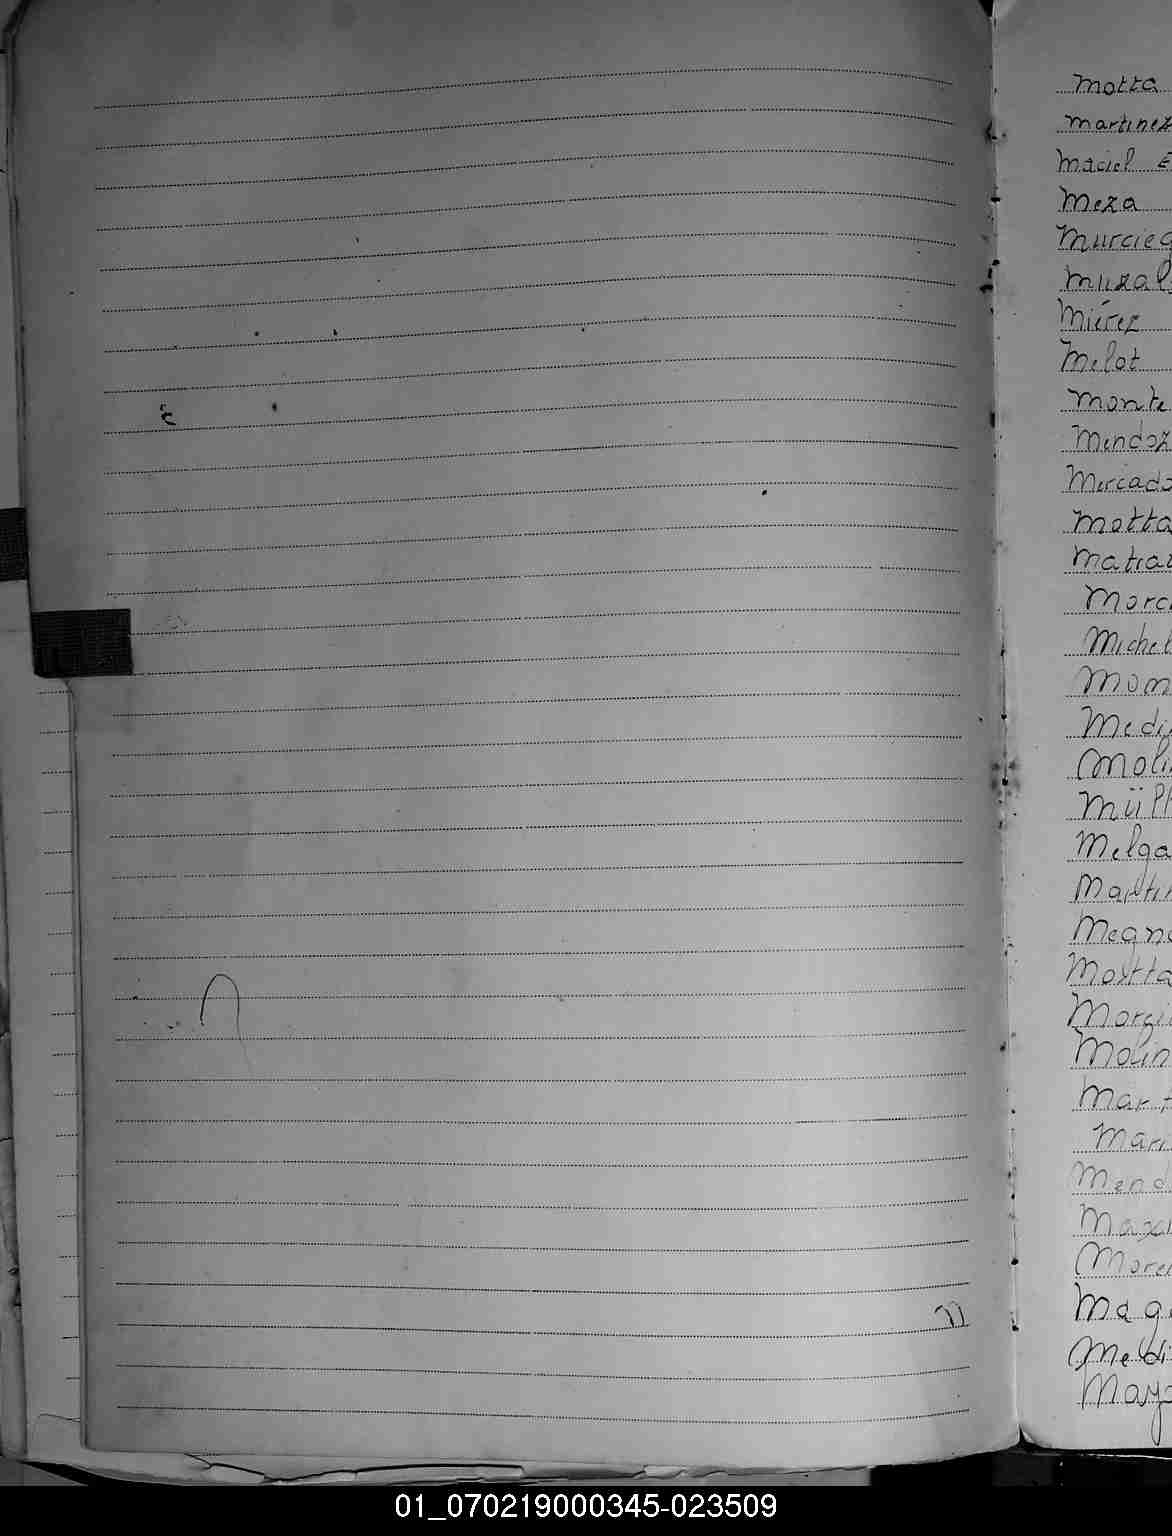 Motta
Martinez
Maciel E
Meza
Murcieg
Muzal
Miérez
Melot
Monte
Mendoz
Mercado
Motta
Matra
Morc
Michel
Mon
Medi
Moli
Müll
Melga
Martin
Megn
Motta
Morgi
Molin
Mart
Mari
Mend
Maza
More
Mag
Meldi
May
01_070219000345-023509